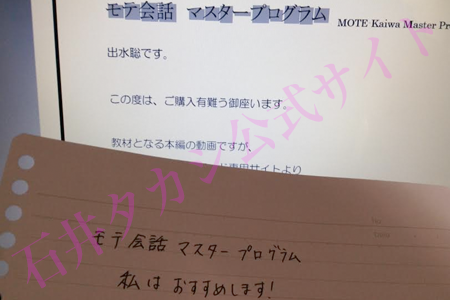 モテ会話 マスタープログラム MOTE Kaiwa Master Pr
出水聡です。
この度は、ご購入有難う御座います。
教材となる本編の動画ですが、
専用サイトより
モテ会話 マスタープログラム
私はおすすめします!
石井タカシ公式サイト